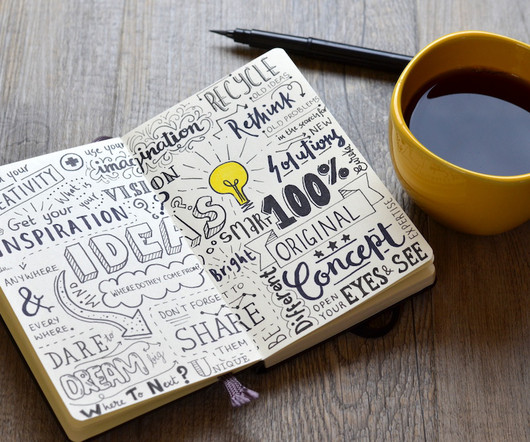 YOUR
CREATIVITY
+
use your
imagination
What is
your
VISION
?
Get your
INSPIRATION
ON
IDEAS
ANYWHERE
&
EVERY
WHERE.
MIND
WHERE DO THEY COME FROM?
DON'T FORGET TO
SHARE
THEM
U
UNIQUE
DARE to
DREAM big
Where To Next?
RECYCLE
OLD IDEAS
Rethink
OLD PROBLEMS
in the search for
NEW
Solutions
smart
Bright
100%
ORIGINAL
Concept
EXPERTISE
BE
Different
OPEN
YOUR
EYES & SEE